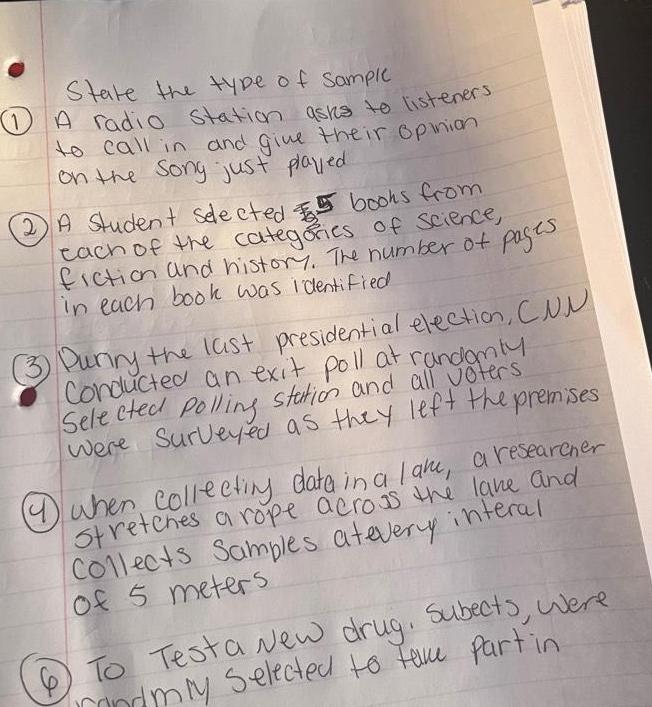 State the type of sample
① A radio station asks to listeners
to call in and give their opinion
on the song just played
② A Student selected 5 books from
each of the categories of science,
fiction and history. The number of pages
in each book was identified
③ During the last presidential election, CNN
conducted an exit poll at randomly
Selected polling station and all voters
were surveyed as they left the premises
④ when collecting data in a lake, a researcher
stretches a rope across the lake and
collects samples at every interal
of 5 meters
⑥ To Test a New drug. Subects, were
randmly selected to take part in